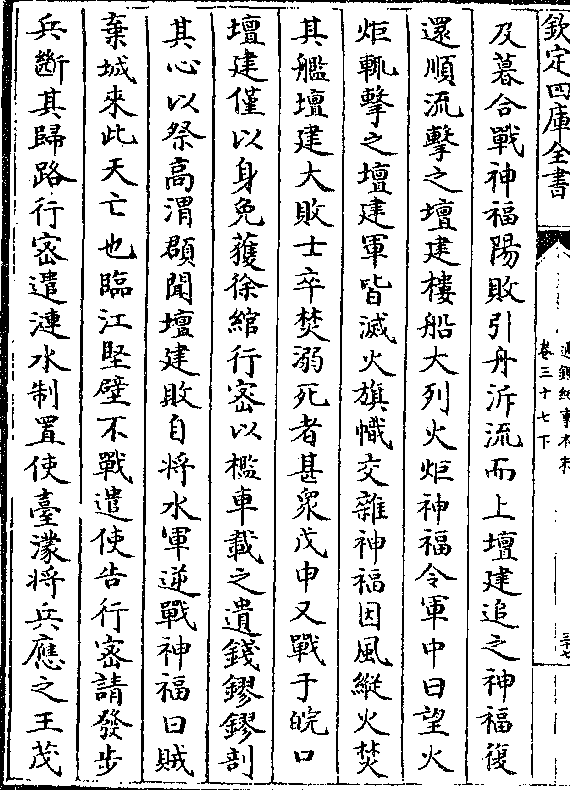 欽定四庫全書
卷三十七下
及暮合戰神福陽敗引舟泝流而上壇建追之神福復
還順流擊之壇建樓船大列火炬神福令軍中曰望火
炬輒擊之壇建軍皆滅火旗幟交雜神福因風縱火焚
其艦壇建大敗士卒焚溺死者甚衆戊申又戰于皖口
壇建僅以身免獲徐綰行密以檻車載之遺錢鏐鏐剖
其心以祭高渭頵聞壇建敗自將水軍逆戰神福曰賊
棄城來此天亡也臨江堅壁不戰遣使告行密請發步
兵斷其歸路行密遣漣水制置使臺濛將兵應之王茂